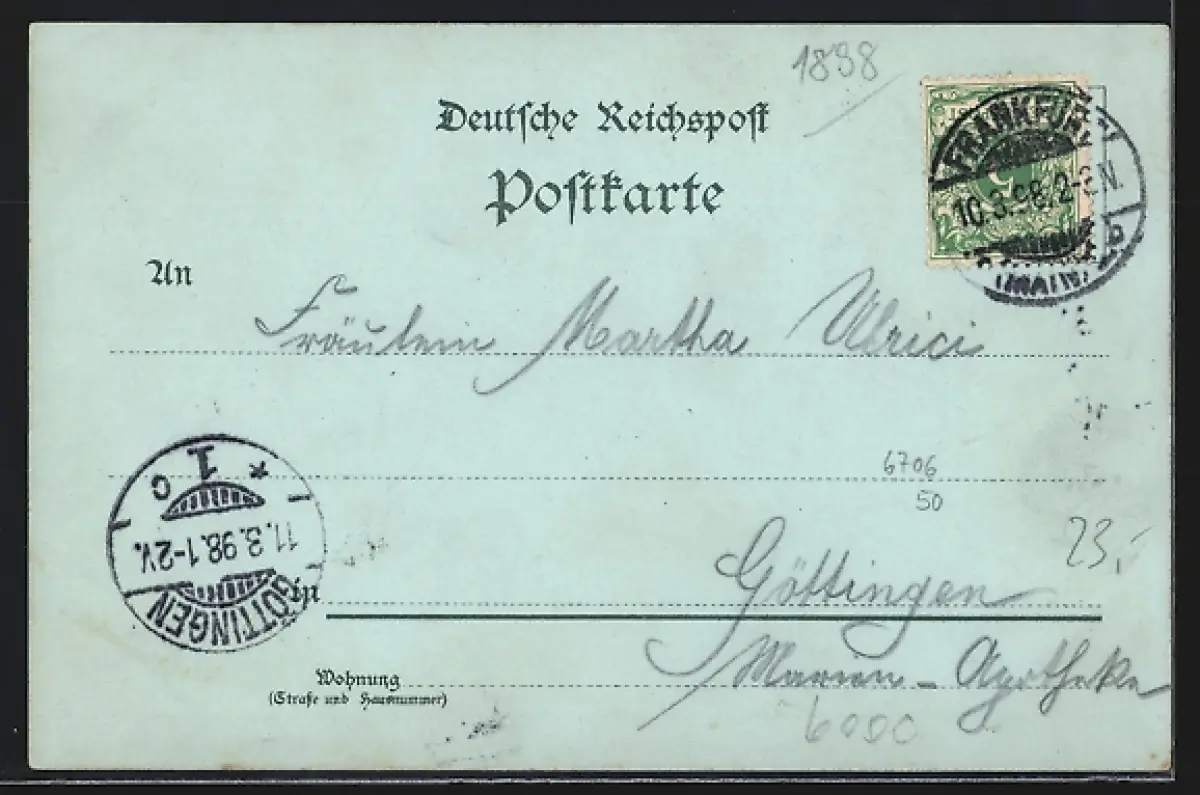 1898
Deutsche Reichspost
Postkarte
FRANKFURT
10.3.98.2-3N.
(MAIN)
5
An
Fräulein Martha Ulrici
1
* c
11.3.98.1-2V.
GÖTTINGEN
6706
50
23,-
in Göttingen
Marien-Apotheke
Wohnung
(Straße und Hausnummer)
6000